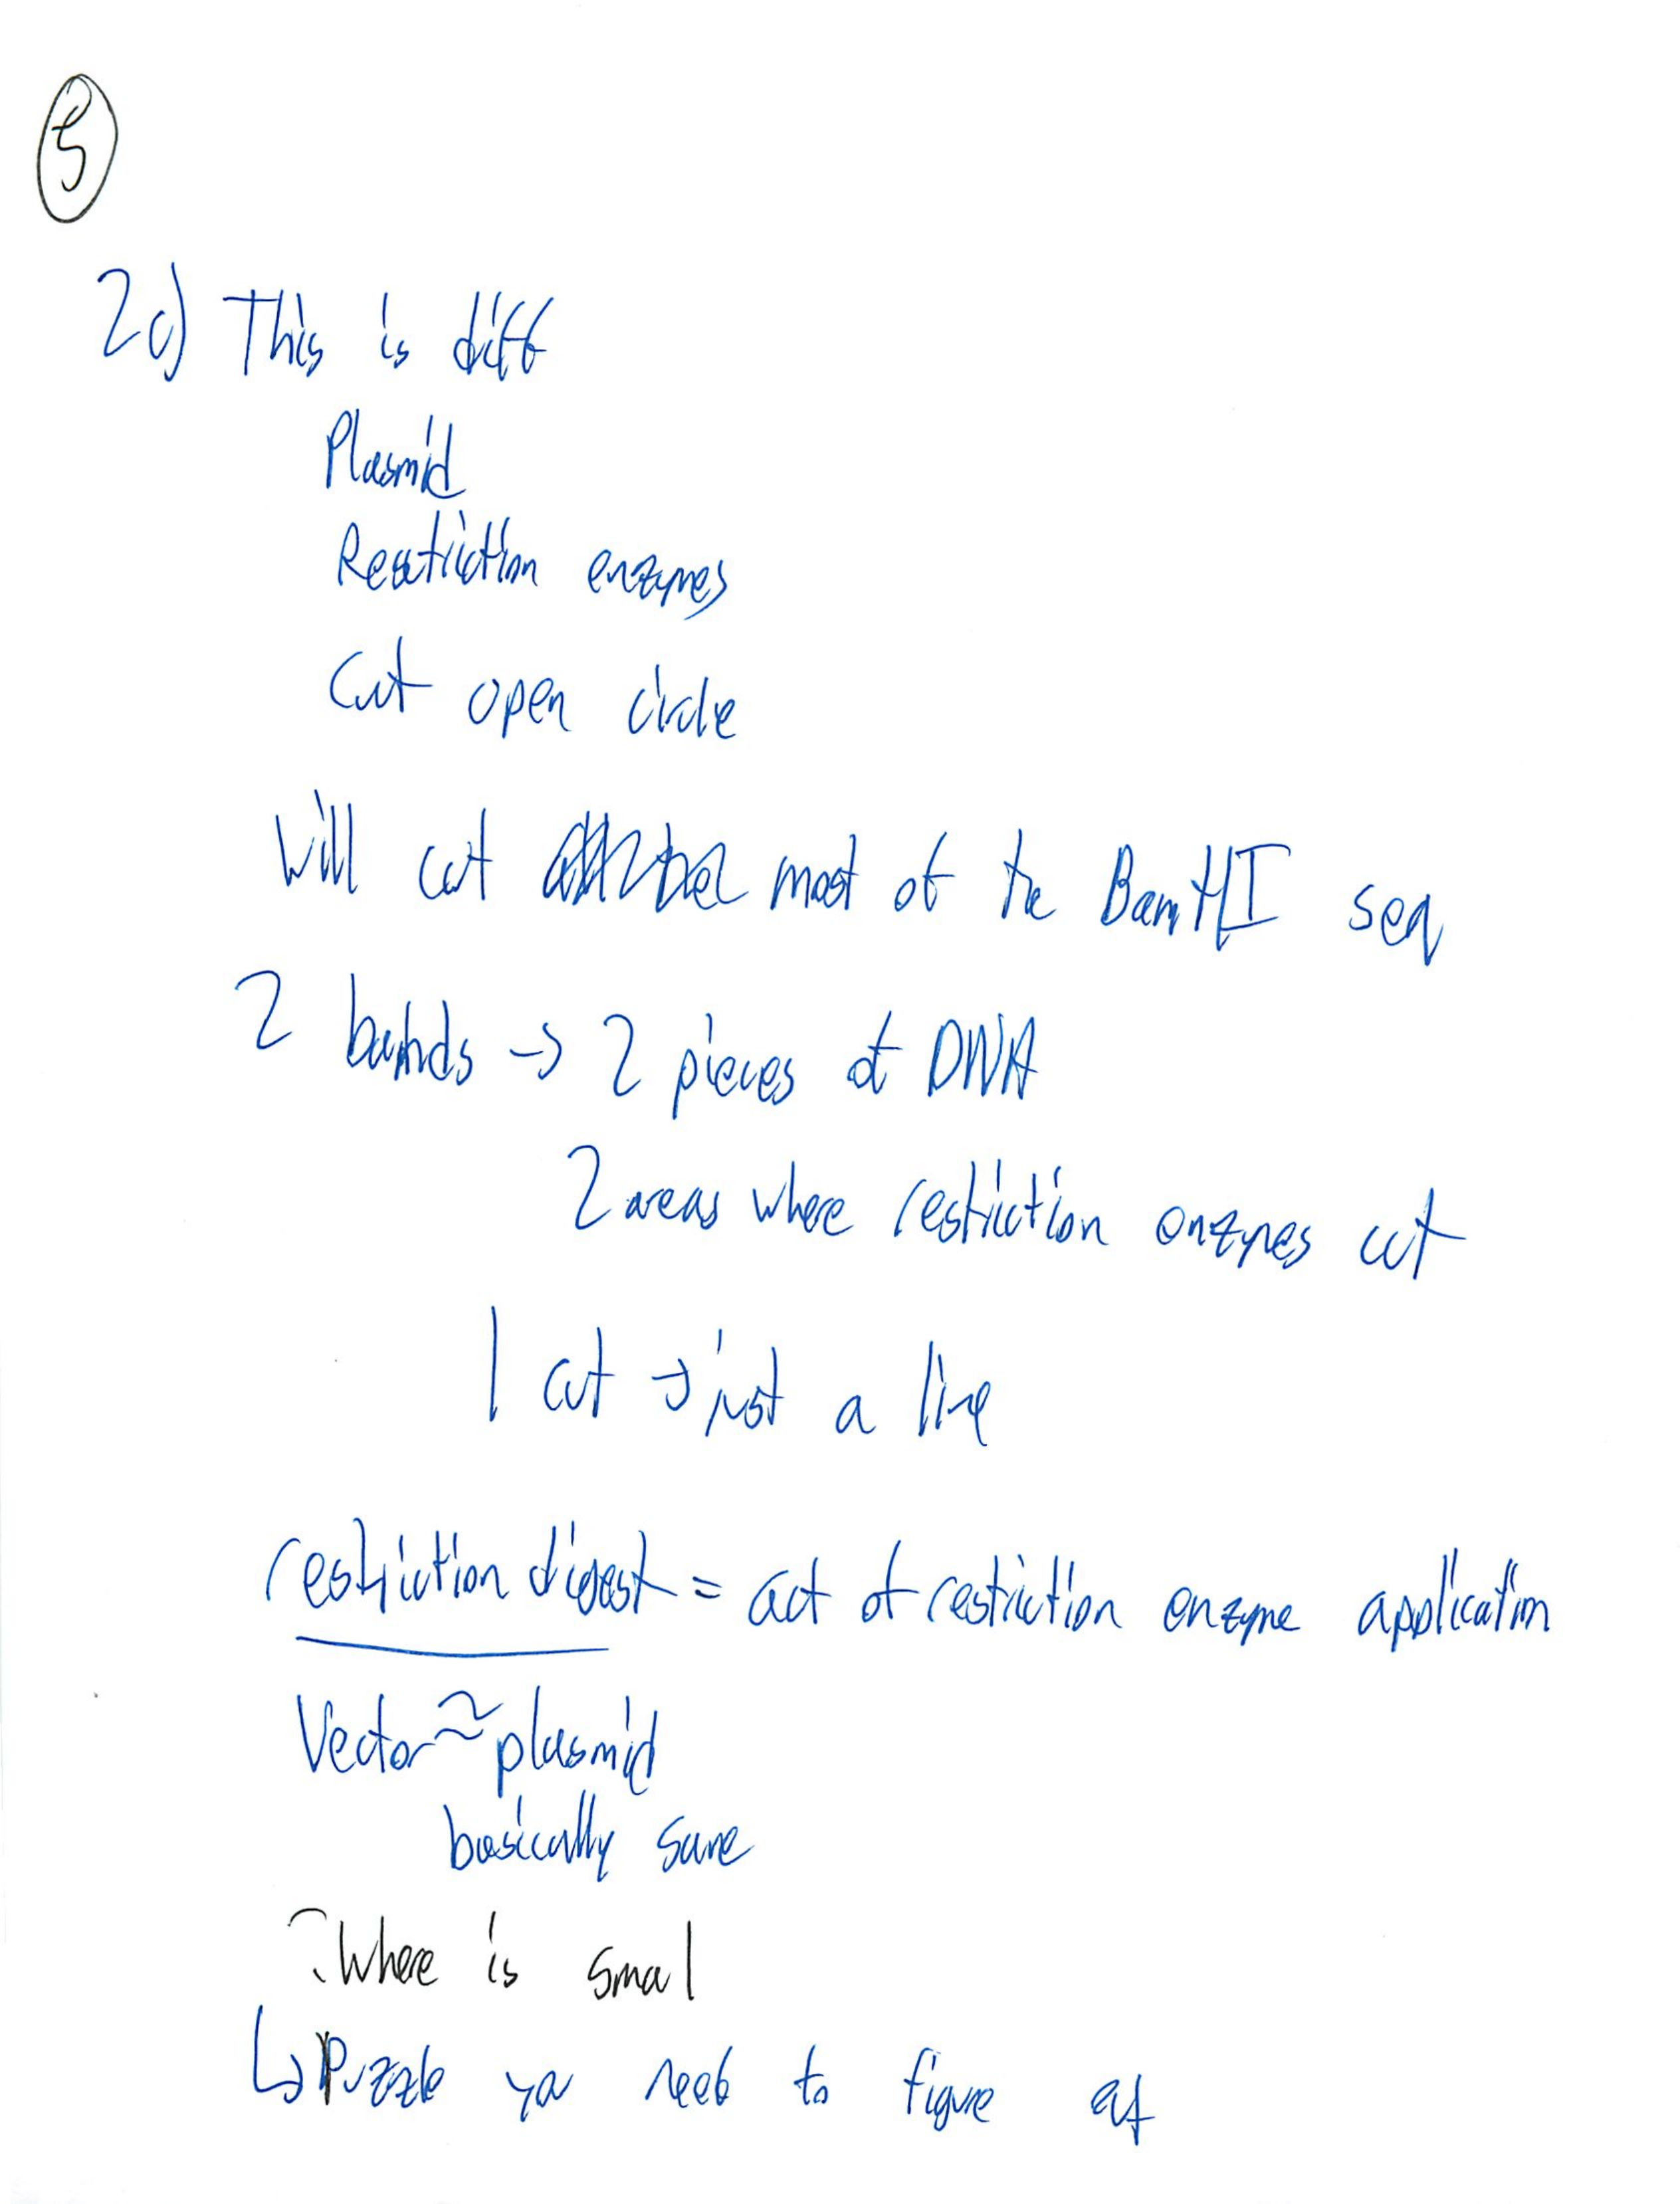 5
2c) This is diff
Plasmid
Restriction enzymes
Cut open circle
Will cut most of the BamHI seq
2 bands → 2 pieces of DNA
2 areas where restriction enzymes cut
1 cut → just a line
restriction digest = act of restriction enzyme application
Vector ≈ plasmid
basically same
? Where is SmaI
↳ Puzzle you need to figure out